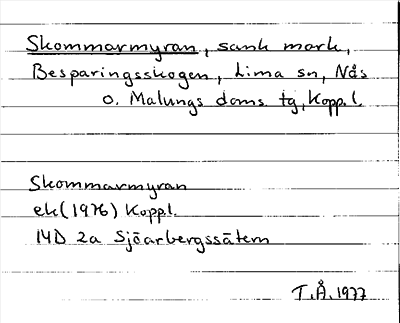 Skommarmyran, sank mark,
Besparingsskogen, Lima sn, Nås
o. Malungs doms. tg, Koppl.
Skommarmyran
ek (1976) Koppl.
14D 2a Sjöarbergssätern
T.Å. 1977